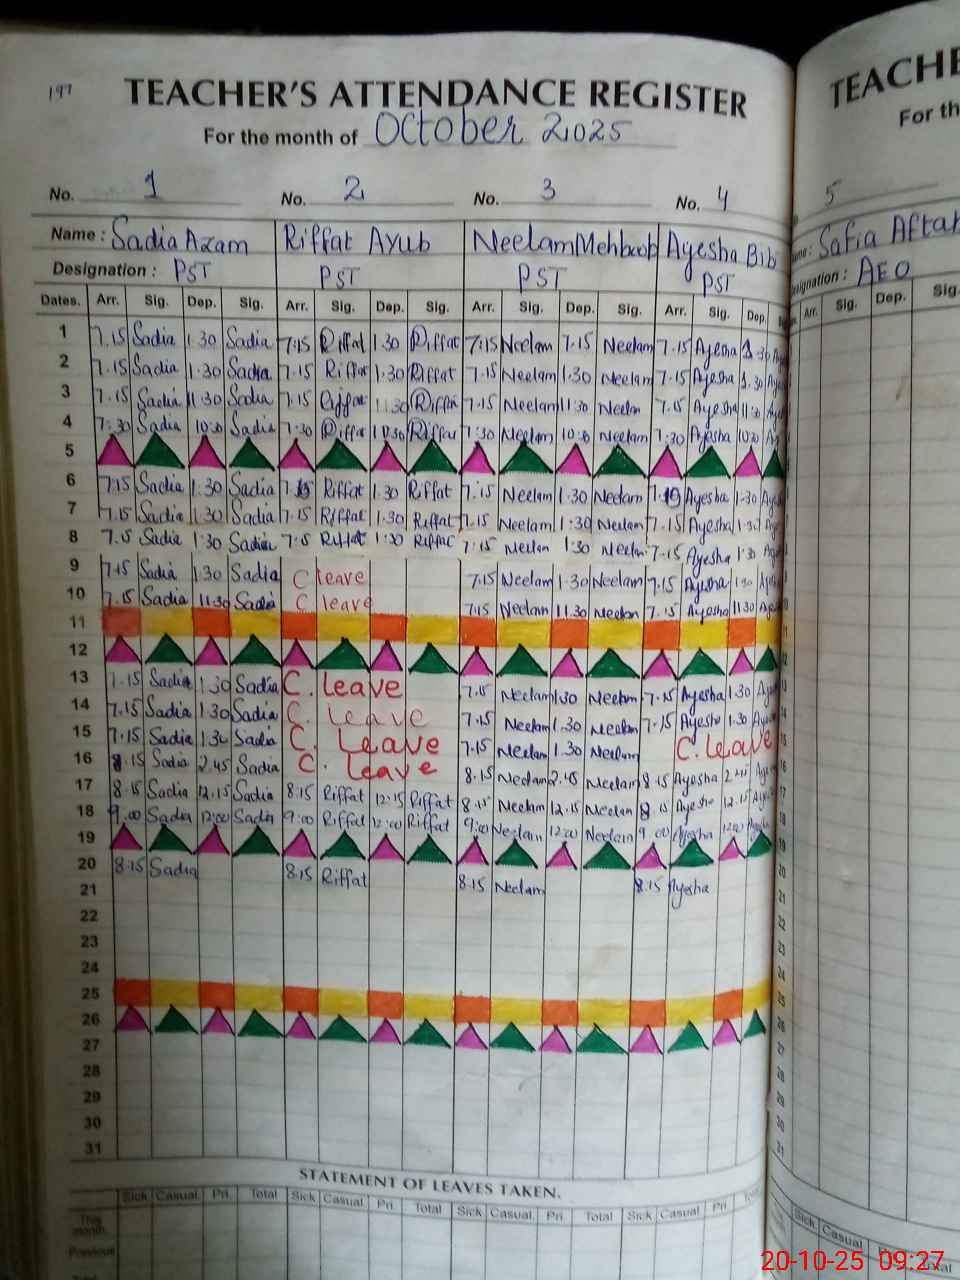 197
TEACHER'S ATTENDANCE REGISTER
For the month of October 2025
No. 1 No. 2 No. 3 No. 4
Name : Sadia Azam Riffat Ayub Neelam Mehboob Ayesha Bib
Designation : PST PST PST PST
Dates. Arr. Sig. Dep. Sig. Arr. Sig. Dep. Sig. Arr. Sig. Dep. Sig. Arr. Sig. Dep.
1 7.15 Sadia 1 30 Sadia 7:15 Riffat 1 30 Riffat 7:15 Neelam 7.15 Neelam 7.15 Ayesha 1 30
2 7.15 Sadia 1.30 Sadia 7.15 Riffat 1.30 Riffat 7.15 Neelam 1.30 Neelam 7.15 Ayesha 1.30
3 7.15 Sadia 11.30 Sadia 7.15 Riffat 11:30 Riffat 7.15 Neelam 11:30 Neelam 7.15 Ayesha 11:30
4 7:30 Sadia 10:30 Sadia 7:30 Riffat 10:30 Riffat 7:30 Neelam 10:30 Neelam 7:30 Ayesha
5
6 7:15 Sadia 1.30 Sadia Riffat 1.30 Riffat 7.15 Neelam 1.30 Neelam Ayesha 1.30
7 7.15 Sadia 1.30 Sadia 7.15 Riffat 1:30 Riffat 7.15 Neelam 1:30 Neelam 7.15 Ayesha
8 7.15 Sadia 1:30 Sadia 7:15 Riffat 1:30 Riffat 7:15 Neelam 1:30 Neelam 7.15 Ayesha 1:30
9 7.15 Sadia 1.30 Sadia C leave 7.15 Neelam 1.30 Neelam 7.15 Ayesha 1.30
10 7.15 Sadia 11.30 Sadia C leave 7.15 Neelam 11.30 Neelam 7.15 Ayesha 11.30
11
12
13 7.15 Sadia 1.30 Sadia C. leave 7.15 Neelam 1.30 Neelam 7.15 Ayesha 1.30
14 7.15 Sadia 1.30 Sadia C. leave 7.15 Neelam 1.30 Neelam 7.15 Ayesha 1.30
15 7.15 Sadia 1.30 Sadia C. Leave 7.15 Neelam 1.30 Neelam C. Leave
16 8.15 Sadia 2.45 Sadia C. leave 8.15 Neelam 2.45 Neelam 8.15 Ayesha 2.45
17 8.15 Sadia 12.15 Sadia 8:15 Riffat 12:15 Riffat 8.15 Neelam 12.15 Neelam 8.15 Ayesha 12.15
18 9.00 Sadia 12:00 Sadia 9:00 Riffat 12:00 Riffat 9:00 Neelam 12:00 Neelam 9.00 Ayesha 12:00
19
20 8.15 Sadia 8:15 Riffat 8.15 Neelam 8.15 Ayesha
21
22
23
24
25
26
27
28
29
30
31
STATEMENT OF LEAVES TAKEN.
Sick Casual Pri. Total Sick Casual Pri. Total Sick Casual Pri. Total Sick Casual Pri.
This month.
Previous
TEACHE
For th
5
Safia Aftab
AEO
Arr. Sig. Dep. Sig.
Sick Casual
20-10-25 09:27